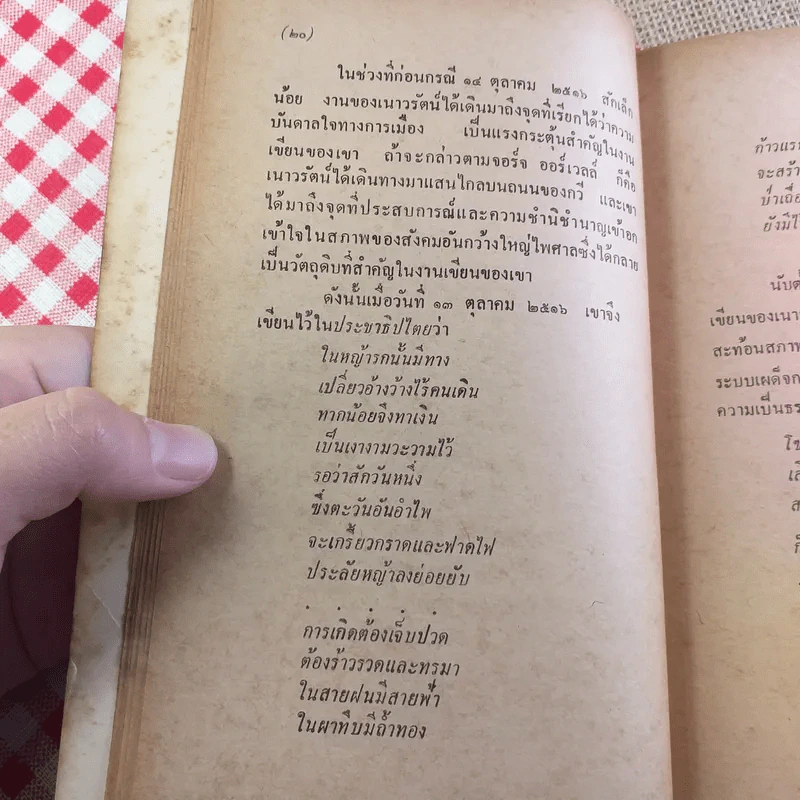 (๒๐)
ในช่วงที่ก่อนกรณี ๑๔ ตุลาคม ๒๕๑๖ สักเล็ก
น้อย งานของเนาวรัตน์ได้เดินมาถึงจุดที่เรียกได้ว่าความ
บันดาลใจทางการเมือง เป็นแรงกระตุ้นสำคัญในงาน
เขียนของเขา ถ้าจะกล่าวตามจอร์จ ออร์เวลล์ ก็คือ
เนาวรัตน์ได้เดินทางมาแสนไกลบนถนนของกวี และเขา
ได้มาถึงจุดที่ประสบการณ์และความชำนิชำนาญเข้าอก
เข้าใจในสภาพของสังคมอันกว้างใหญ่ไพศาลซึ่งได้กลาย
เป็นวัตถุดิบที่สำคัญในงานเขียนของเขา
ดังนั้นเมื่อวันที่ ๑๓ ตุลาคม ๒๕๑๖ เขาจึง
เขียนไว้ในประชาธิปไตยว่า
ในหญ้ารกนั้นมีทาง
เปลี่ยวอ้างว้างไร้คนเดิน
ทากน้อยจึงทาเงิน
เป็นเงางามวะวามไว้
รอว่าสักวันหนึ่ง
ซึ่งตะวันอันอำไพ
จะเกรี้ยวกราดและฟาดไฟ
ประลัยหญ้าลงย่อยยับ
การเกิดต้องเจ็บปวด
ต้องร้าวรวดและทรมา
ในสายฝนมีสายฟ้า
ในผาทึบมีถ้ำทอง
ก้าวแรก
จะสร้า
ป่าเถื่อ
ยังมีไ
นับต
เขียนของเนา
สะท้อนสภาพ
ระบบเผด็จก
ความเป็นธร
โซ
เสี
ส
ก็